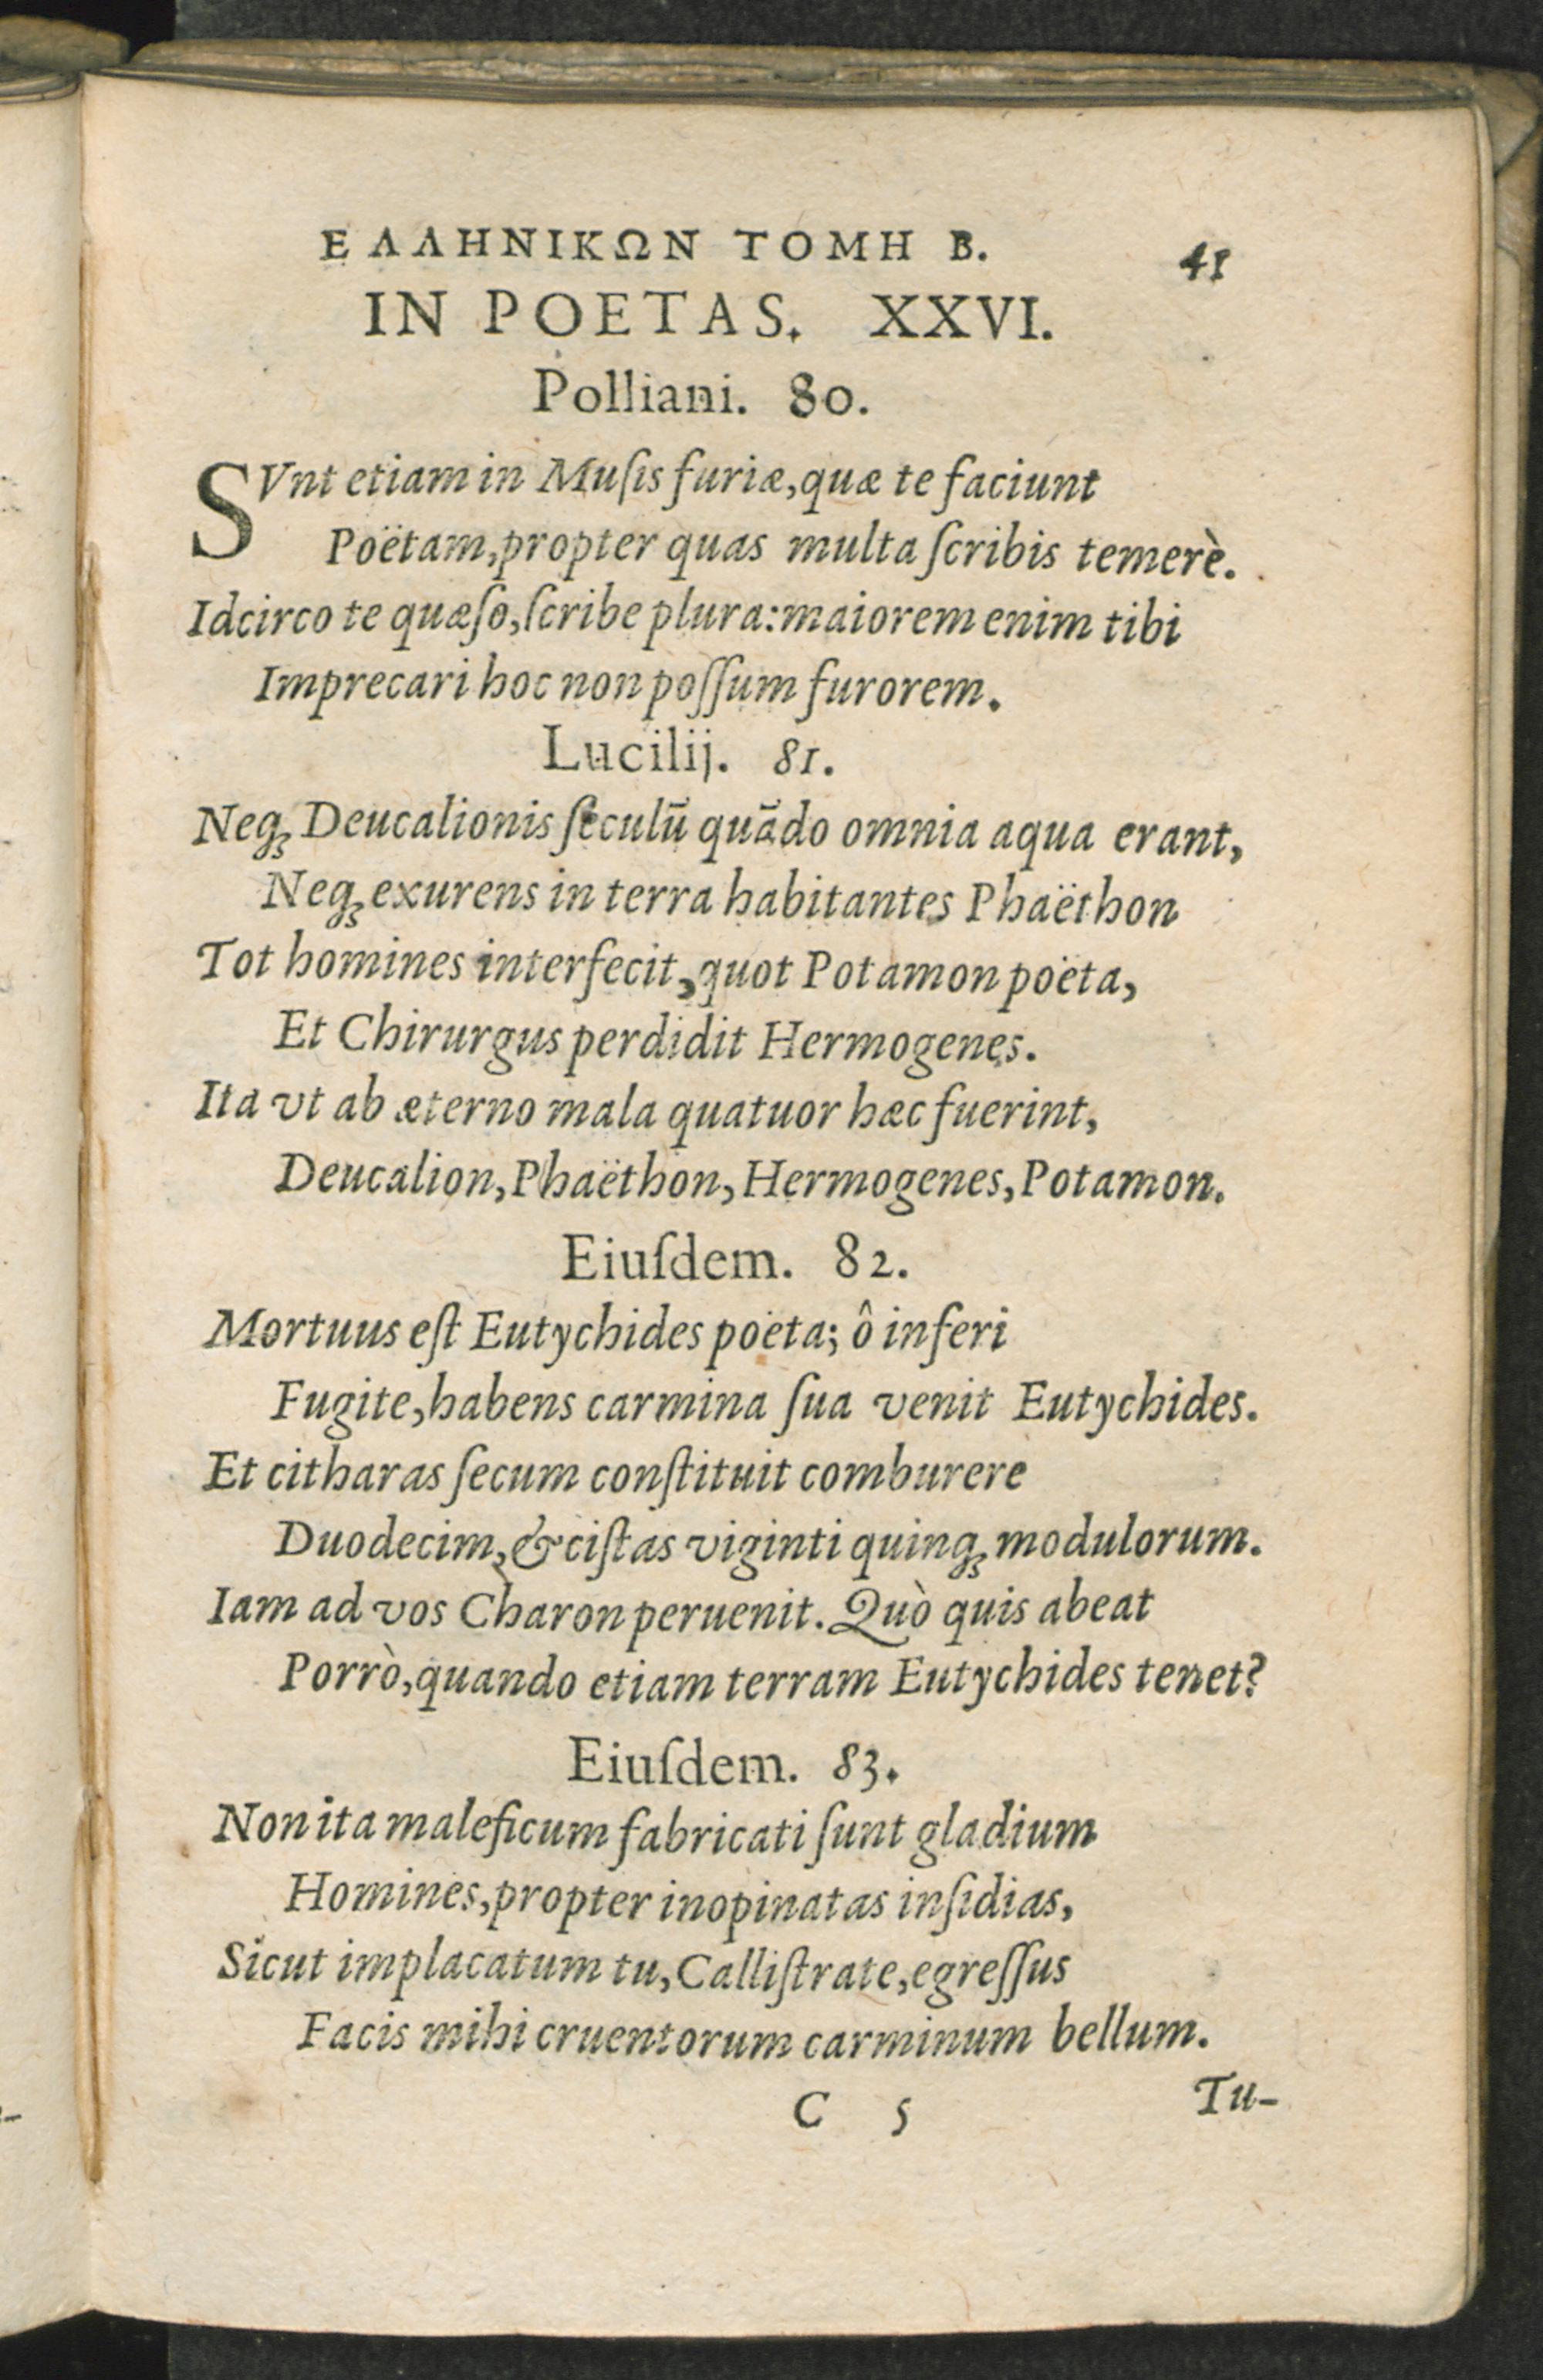 ΕΛΛΗΝΙΚΩΝ ΤΟΜΗ Β. 41
IN POETAS. XXVI.
Polliani. 80.
SVnt etiam in Muſis furiæ,quæ te faciunt
Poëtam,propter quas multa ſcribis temerè.
Idcirco te quæſo,ſcribe plura:maiorem enim tibi
Imprecari hoc non poſſum furorem.
Lucilij. 81.
Neq; Deucalionis ſeculũ quãdo omnia aqua erant,
Neq; exurens in terra habitantes Phaëthon
Tot homines interfecit,quot Potamon poëta,
Et Chirurgus perdidit Hermogenes.
Ita vt ab æterno mala quatuor hæc fuerint,
Deucalion,Phaëthon,Hermogenes,Potamon.
Eiuſdem. 82.
Mortuus eſt Eutychides poëta; ô inferi
Fugite,habens carmina ſua venit Eutychides.
Et citharas ſecum conſtituit comburere
Duodecim,& ciſtas viginti quinq; modulorum.
Iam ad vos Charon peruenit. Quò quis abeat
Porrò,quando etiam terram Eutychides tenet?
Eiuſdem. 83.
Non ita maleficum fabricati ſunt gladium
Homines,propter inopinatas inſidias,
Sicut implacatum tu,Calliſtrate,egreſſus
Facis mihi cruentorum carminum bellum.
C 5 Tu-